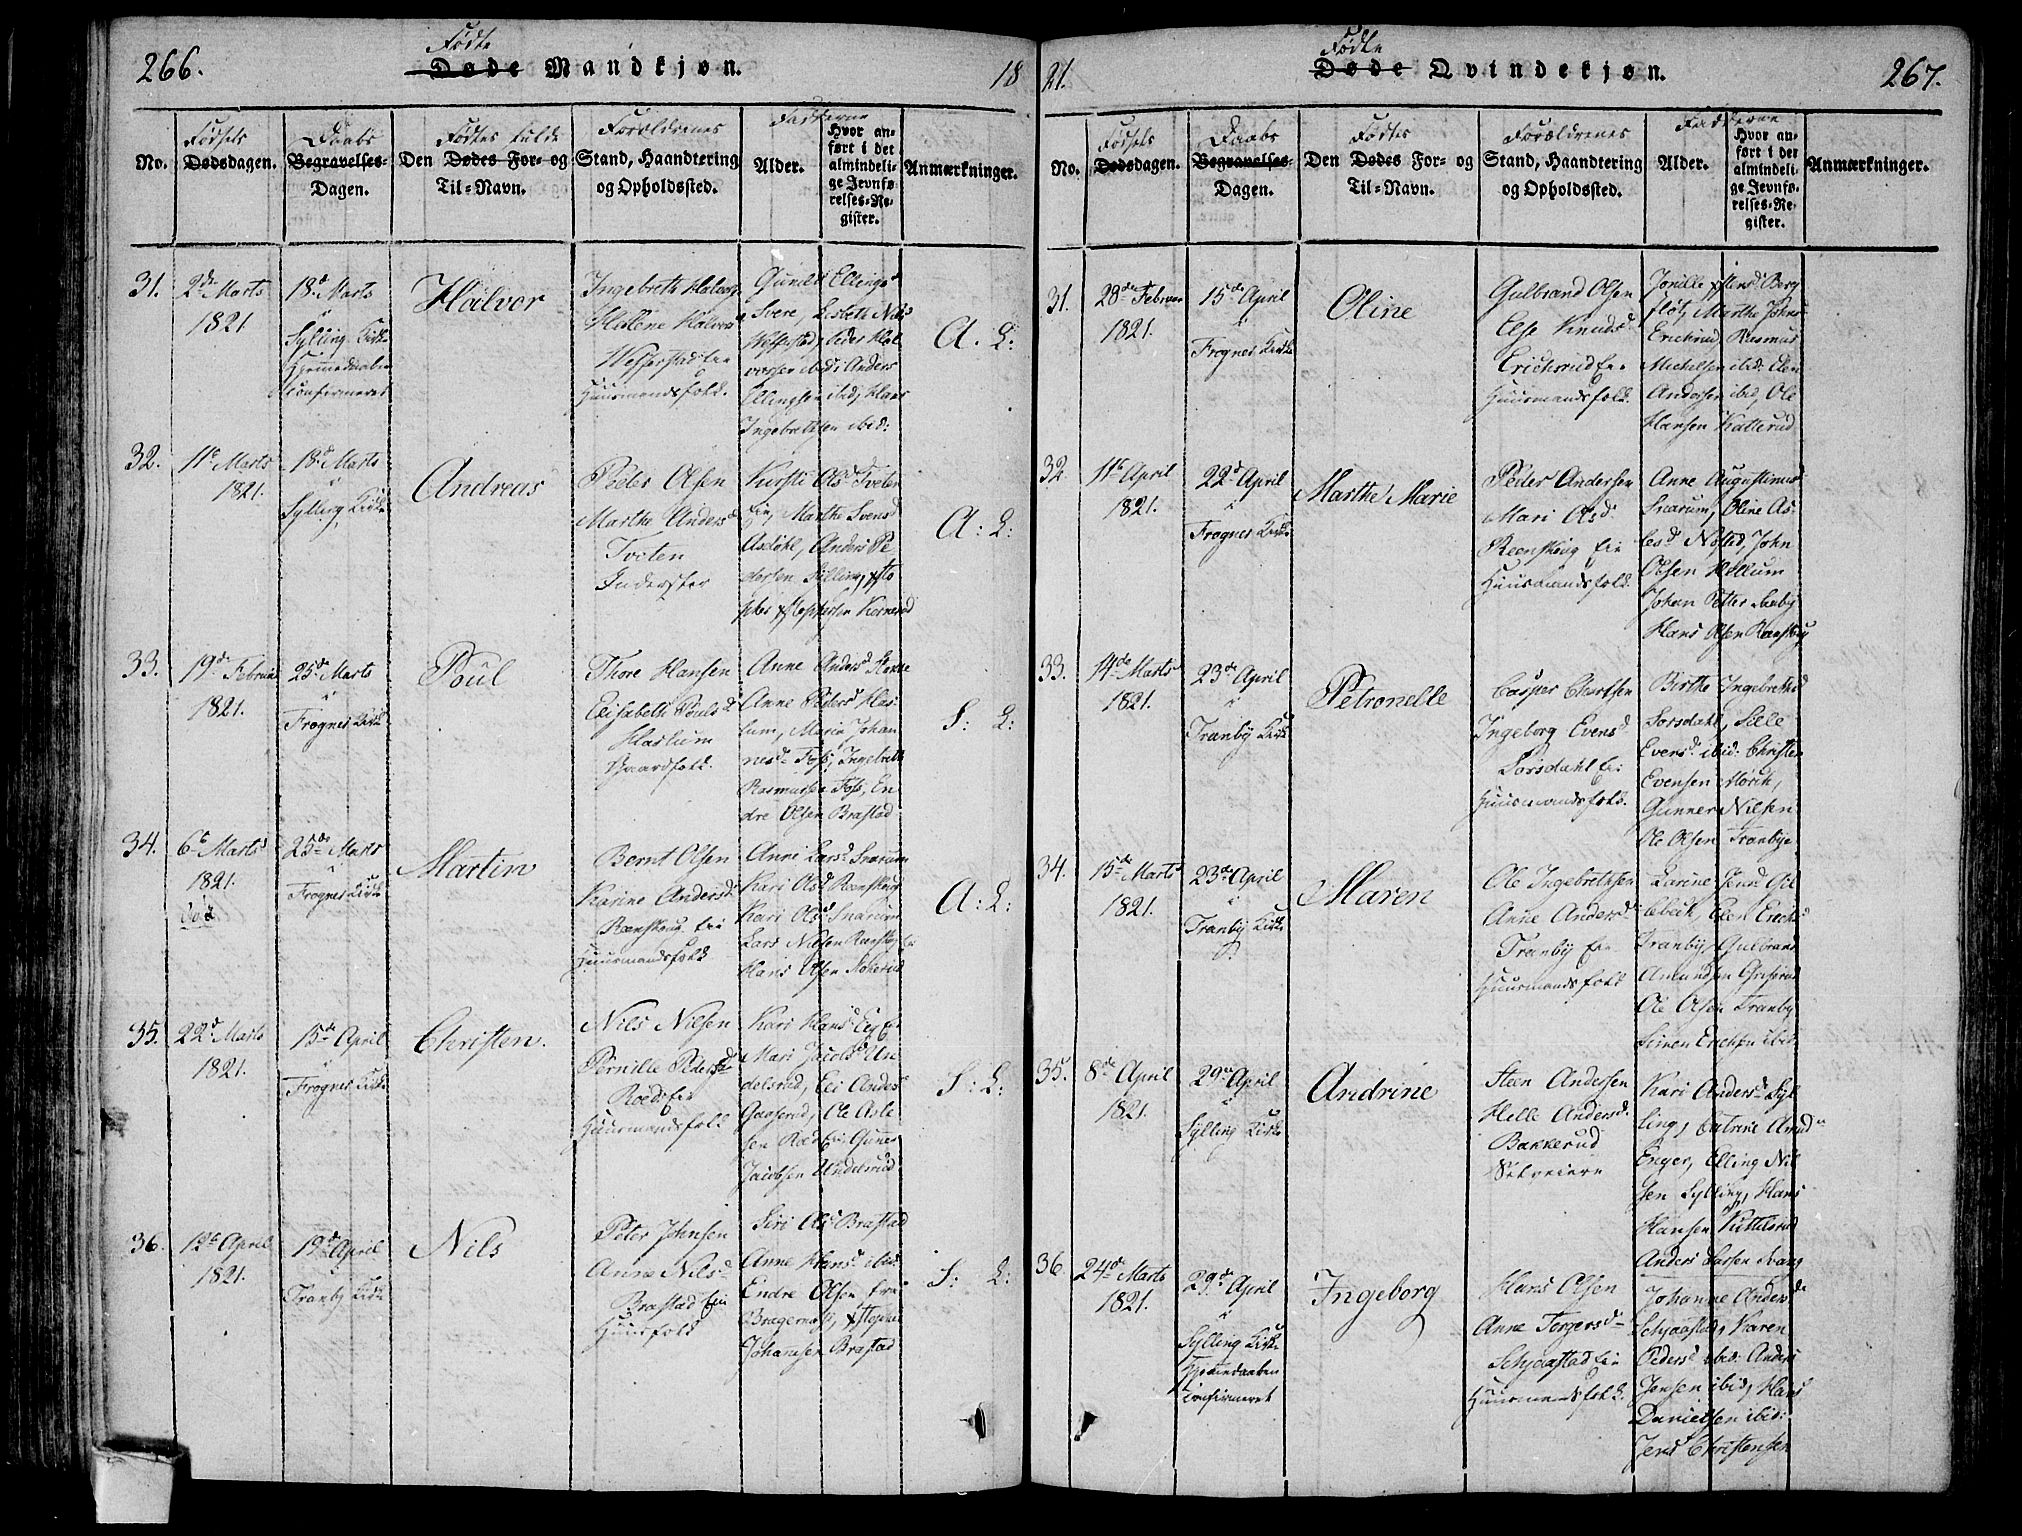 266.
Fødte
Døde Mandkjøn.
18
No.
Fødsels
Dødsdagen.
Daabs
Begravelses-
Dagen.
Fødtes fulde
Den Dødes For- og
Til-Navn.
Forældrenes
Stand, Haandtering
og Opholdssted.
Fadderne
Alder.
Hvor an-
ført i det
almindeli-
ge Jevnfø-
relses-Re-
gister.
Anmærkninger.
31.
2de Marts
1821
18d Marts
i
Sylling Kirke
Hjemmedaaben
confirmeret
Halvor
Ingebreth Halvors
Halvors
Huusmandsfolk.
Gunild Ellingsd
Svere, Lisbeth Nils
Peder Hal
vorsen ibid: Anders
Ellingsen ibid, Hans
Ingebrethsen ibid:
A. L:
32.
11te Marts
1821.
18d Marts
i
Sylling Kirke
Andreas
Peder Olsen
Marthe Andersd
Tveten
Inderster
Kirsti Olsd Tveten
Eie, Marthe Svensd
Asdøhl, Anders Pe
dersen Silling, Xsto
pher Xstophersen
A: L:
33.
19de Februar
1821.
25de Marts
i
Frogner Kirke
Poul
Thore Hansen
Elisabeth Poulsd
Haslum
Gaardfolk.
Anne Andersd
Anne Pedersd Has-
lum, Maria Johan
nesd Foss, Ingebreth
Rasmussen Foss, En
dre Olsen Brastad
S: L:
34.
6te Marts
1821.
25de Marts
i
Frogner Kirke
Martin
Bernt Olsen
Karine Andersd
Rænskoug Eie
Huusmandsfolk
Anne Larsd Snarum
Kari Olsd Rænskoug
Kari Olsd Snarum
Lars Nilsen Rænskog Eie
Hans Olsen Stokerud
A: L:
35.
22d Marts
1821.
15de April
i
Frogner Kirke
Christen.
Nils Nilsen
Pernille Pedersd
Roeds Eie
Huusmandsfolk
Kari Hansd Eie
Mari Jacobsd Un
delsrud, Eli Andersd
Gaaserud, Ole Asle
sen Roed Eie, Gunner
Jacobsen Undelsrud
S: L:
36.
12te April
1821.
19d April
i
Tranby Kirke
Nils
Peter Johnsen
Anne Nilsd
Brastad Eie
Huusfolk
Siri Olsd Brastad
Anne Hansd ibid
Endre Olsen fra
Bragernæss, Xstopher
Johansen Brastad
S: L:
21.
Fødte
Døde Qvindekjøn.
267.
No.
Fødsels
Dødsdagen.
Daabs
Begravelses-
Dagen.
Fødtes
Den Dødes For- og
Til-Navn.
Forældrenes
Stand, Haandtering
og Opholdssted.
Fadderne
Alder.
Hvor an-
ført i det
almindeli-
ge Jevnfø-
relses-Re-
gister.
Anmærkninger.
31.
28de Februar
1821.
15de April
i
Frogner Kirke
Oline
Gulbrand Olsen
Else Knudsd
Erichsrud Eie
Huusmandsfolk.
Berg
fløt, Marthe Johns
Erichsrud, Rasmus
Michelsen ibid. Elen
Andersen ibid, Ole
Hansen Katterud
32.
11te April
1821.
22d April
i
Frogner Kirke
Marthe Marie
Peder Andersen
Mari Olsd
Reenskoug Eie
Huusmandsfolk.
Anne Augustinusd
Snarum, Oline As
lesd Nøsted, John
Olsen Hellum
Johan Petter
Hans Olsen Rænskoug
33.
14de Marts
1821.
23de April
i
Tranby Kirke
Petronelle
Casper
Ingeborg Evensd
Sørsdahl Eie
Huusmandsfolk.
Birthe Ingebrethsd
Sørsdahl, Sille
Evensd ibid: Christen
Evensen Mørch,
Gunner Nilsen
Ole Olsen Tranbye
34.
15de Marts
1821.
23de April
i
Tranby Kirke
Maren
Ole Ingebrethsen
Anne Andersd
Tranby Eie
Huusmandsfolk
Larine Jensd Gil
lebech, Elen Erichsd
Tranby, Gulbrand
Amundsen
Ole Olsen Tranby
Simen Erichsen ibid.
35.
8de April
1821.
29de April
i
Sylling Kirke
Andrine
Steen Andersen
Helle Andersd
Bakkerud
Selveiere
Kari Andersd Syl
ling, Cathrine Amund
Enger, Elling Nil
sen Sylling, Hans
Hansen Kittelsrud
Anders Larsen Svang
36.
24de Marts
1821.
29de April
i
Sylling Kirke
Hjemmedaaben
confirmeret
Ingeborg
Hans Olsen
Anne Torgersd
Schjaastad Eie
Huusmandsfolk.
Johanne Andersd
Schjaastad, Karen
Pedersd ibid: Anders
Jensen ibid, Hans
Danielsen ibid:
Jens Christensen